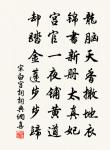 龍腦天香撒地衣
錦書新冊太真妃
宮官一夜鋪黃道
却踏金蓮步步歸
宋白宮詞詞興網書